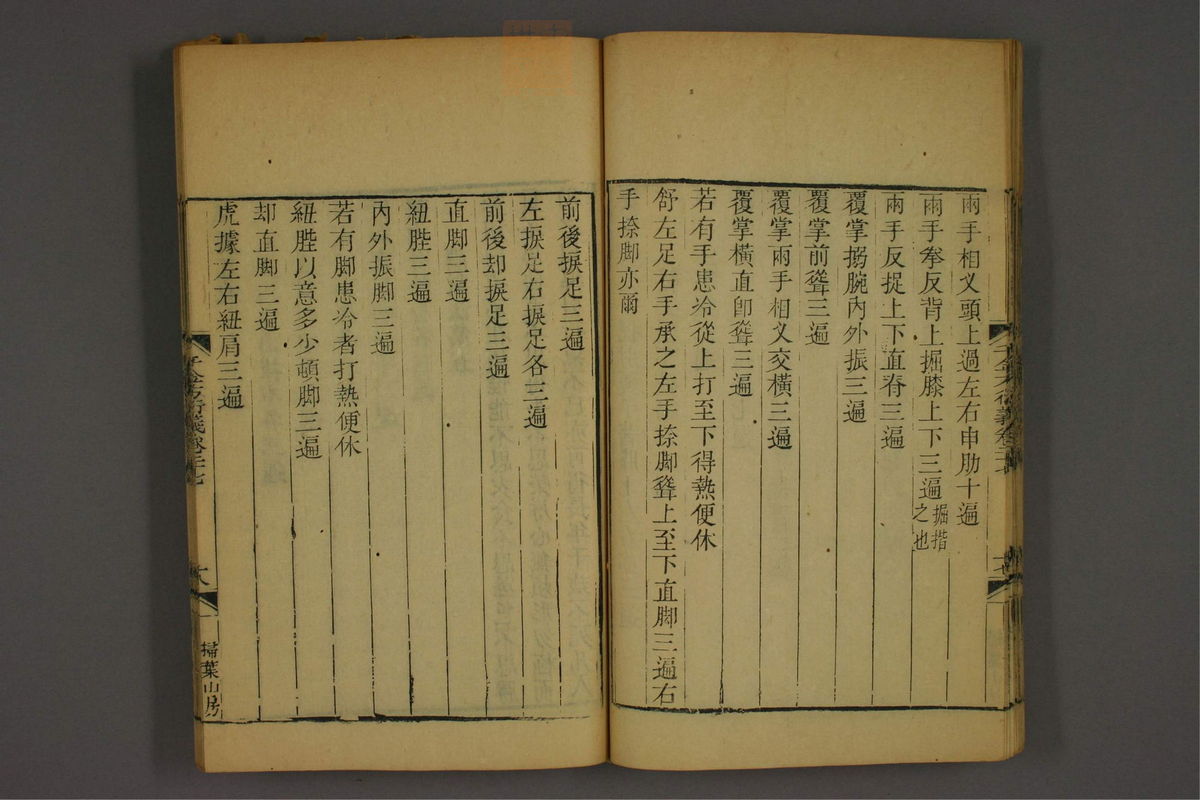 兩手相义頭上過左右申肋十遍
兩手拳反背上掘膝上下三遍掘揩之也
兩手反捉上下直脊三遍
覆掌搦腕內外振三遍
覆掌前聳三遍
覆掌兩手相义交橫三遍
覆掌橫直卽聳三遍
若有手患冷從上打至下得熱便休
舒左足右手承之左手捺脚聳上至下直脚三遍右
手捺脚亦爾
前後捩足三遍
左捩足右捩足各三遍
前後却捩足三遍
直脚三遍
紐䏶三遍
內外振脚三遍
若有脚患冷者打熱便休
紐䏶以意多少頓脚三遍
却直脚三遍
虎據左右紐肩三遍
千金方衍義卷二十七
掃葉山房